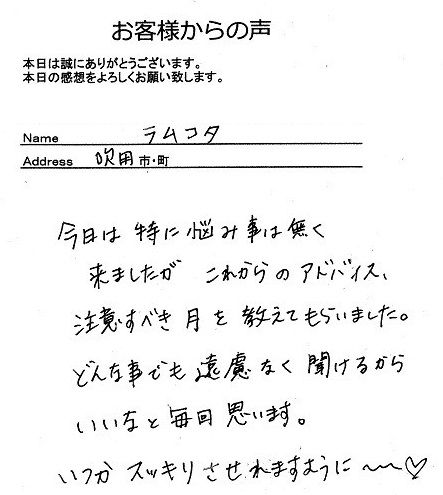 お客様からの声
本日は誠にありがとうございます。
本日の感想をよろしくお願い致します。
Name ラムコタ
Address 吹田市・町
今日は特に悩み事は無く
来ましたが これからのアドバイス、
注意すべき月を教えてもらいました。
どんな事でも遠慮なく聞けるから
いいなと毎回思います。
いつかスッキリさせれますように〜〜♡